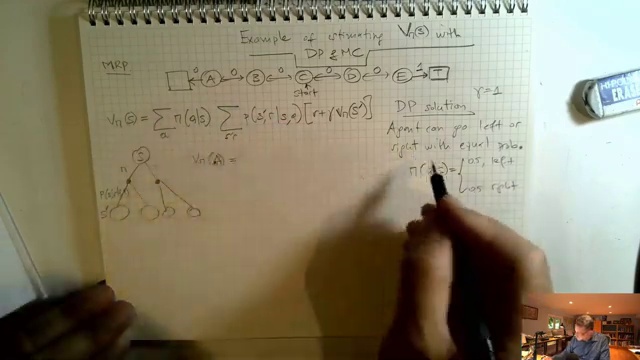 Example of estimating Vπ(s) with
DP & MC
MRP
0 A 0 B 0 C 0 D 0 E 1 T
start
Vπ(s) = Σ_a π(a|s) Σ_s',r p(s',r|s,a) [r + γ Vπ(s')]
DP solution γ=1
Agent can go left or
right with equal prob.
= { 0.5, left
0.5 right
S
π
Vπ(A) =
S'
ERAS